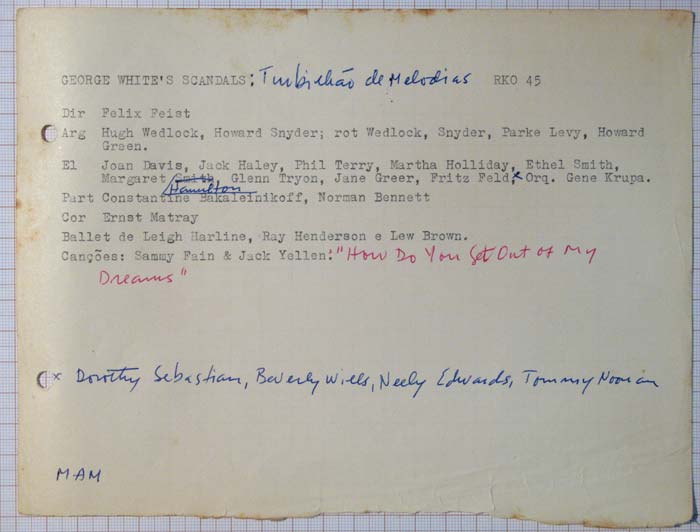 GEORGE WHITE'S SCANDALS: Turbilhão de Melodias RKO 45
Dir Felix Feist
Arg Hugh Wedlock, Howard Snyder; rot Wedlock, Snyder, Parke Levy, Howard
Green.
El Joan Davis, Jack Haley, Phil Terry, Martha Holliday, Ethel Smith,
Margaret Smith, Glenn Tryon, Jane Greer, Fritz Feld,x Orq. Gene Krupa.
Hamilton
Part Constantine Bakaleinikoff, Norman Bennett
Cor Ernst Matray
Ballet de Leigh Harline, Ray Henderson e Lew Brown.
Canções: Sammy Fain & Jack Yellen: "How Do You Get Out of My
Dreams"
x Dorothy Sebastian, Beverly Wills, Neely Edwards, Tommy Noonan
MAM